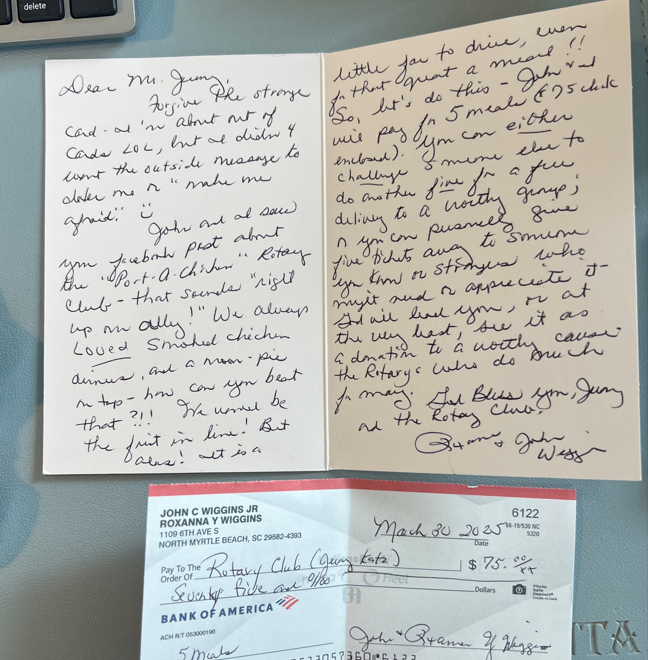 delete
Dear Mr. Jerry,
Forgive the strange
card - I'm about out of
cards LOL, but I didn't
want the outside message to
deter me or "make me
afraid." ☺
John and I saw
your facebook post about
the "Port-A-Chicken" Rotary
Club - that sounds "right
up our alley!" We always
Loved smoked chicken
dinners, and a moon-pie
on top - how can you beat
that?!! We would be
the first in line! But
alas! It is a
little far to drive, even
for that great a meal!!
So, let's do this - John & I
will pay for 5 meals ($75 check
enclosed). You can either
challenge someone else to
do another five for a free
delivery to a worthy group;
or you can personally give
five tickets away to someone
you know or strangers who
might need or appreciate it -
God will lead you, or at
the very least, see it as
a donation to a worthy cause -
the Rotary who do much
for many. God Bless you, Jerry
and the Rotary Club!
Roxanne & John
Wiggins
JOHN C WIGGINS JR
ROXANNA Y WIGGINS
1109 6TH AVE S
NORTH MYRTLE BEACH, SC 29582-4393
6122
66-19/530 NC
5320
March 30 2025
Date
Pay To The
Order Of
Rotary Club (Jerry Katz)
$ 75. 00/xx
Seventy five and 0/00
Dollars
Photo
Safe
Deposit®
BANK OF AMERICA
ACH R/T 053000196
5 Meals
John & Roxanna Y Wiggins
TA